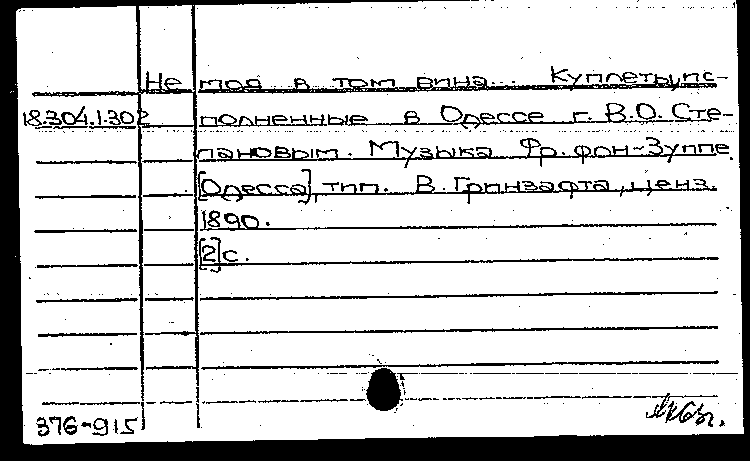 Не моя в том вина... Куплеты, ис-
18.304.1.302 полненные в Одессе г. В.О. Сте-
пановым. Музыка Фр. фон-Зуппе.
[Одесса], тип. В. Гринзафта, ценз.
1890.
[2] с.
376-915